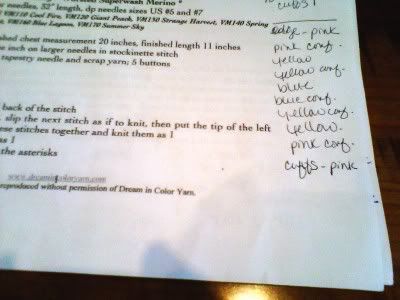 Superwash Merino
VM110 Cool Fire, VM120 Giant Peach, VM130 Strange Harvest, VM140 Spring
Blue Lagoon, VM170 Summer Sky
needles, 32" length, dp needles sizes US #5 and #7
shed chest measurement 20 inches, finished length 11 inches
inch on larger needles in stockinette stitch
tapestry needle and scrap yarn; 5 buttons
back of the stitch
slip the next stitch as if to knit, then put the tip of the left
ese stitches together and knit them as 1
as 1
the asterisks
www.dreamincoloryarn.com
reproduced without permission of Dream in Color Yarn.
cuffs!
edge - pink
pink conf.
yellow
yellow conf.
blue
blue conf.
yellow conf.
yellow.
pink conf.
cuffs - pink